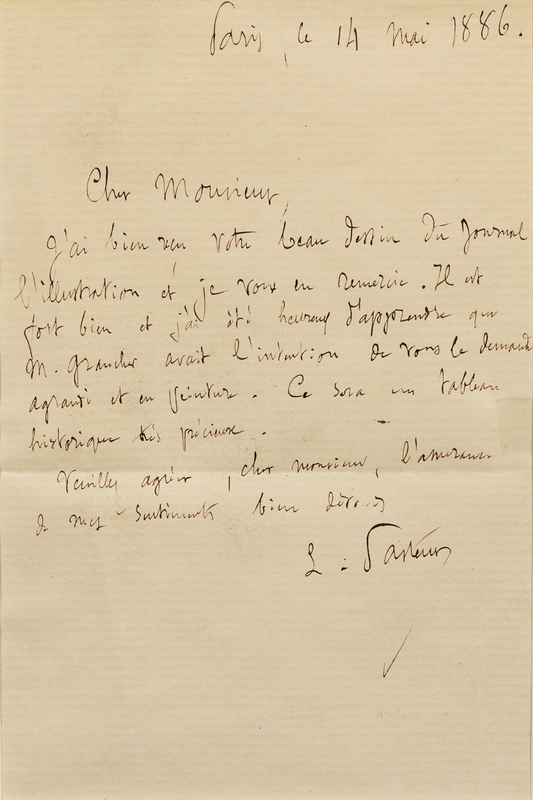 Paris, le 14 mai 1886.
Cher Monsieur,
J'ai bien reçu votre beau dessin du journal
l'illustration et je vous en remercie. Il est
fort bien et j'ai été heureux d'apprendre que
M. Grancher avait l'intention de vous le demander
agrandi et en peinture. Ce sera un tableau
historique très précieux.
Veuillez agréer, cher monsieur, l'assurance
de mes sentiments bien dévoués
L. Pasteur